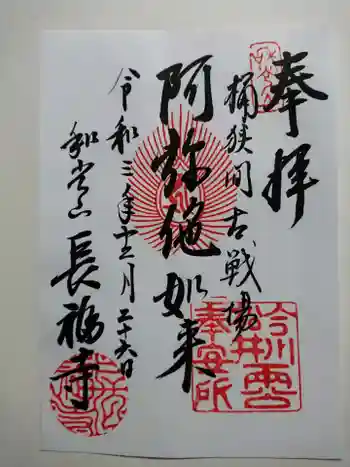 奉拝
桶狭間古戦場
阿弥陀如来
令和三年十二月二十六日
和光山 長福寺
今川松井両公
奉安所